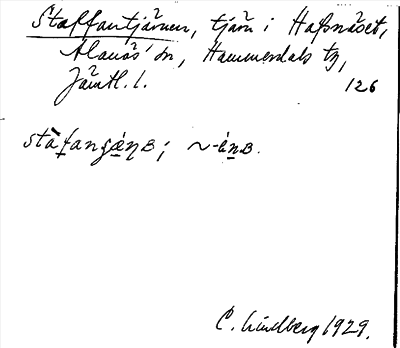 Staffantjärnen, tjärn i Hafsnäset,
Alanäs' sn, Hammerdals tg,
Jämtl. l. 126
stàfangǽṇʙ; ~-ėnʙ.
C. Lindberg 1929.